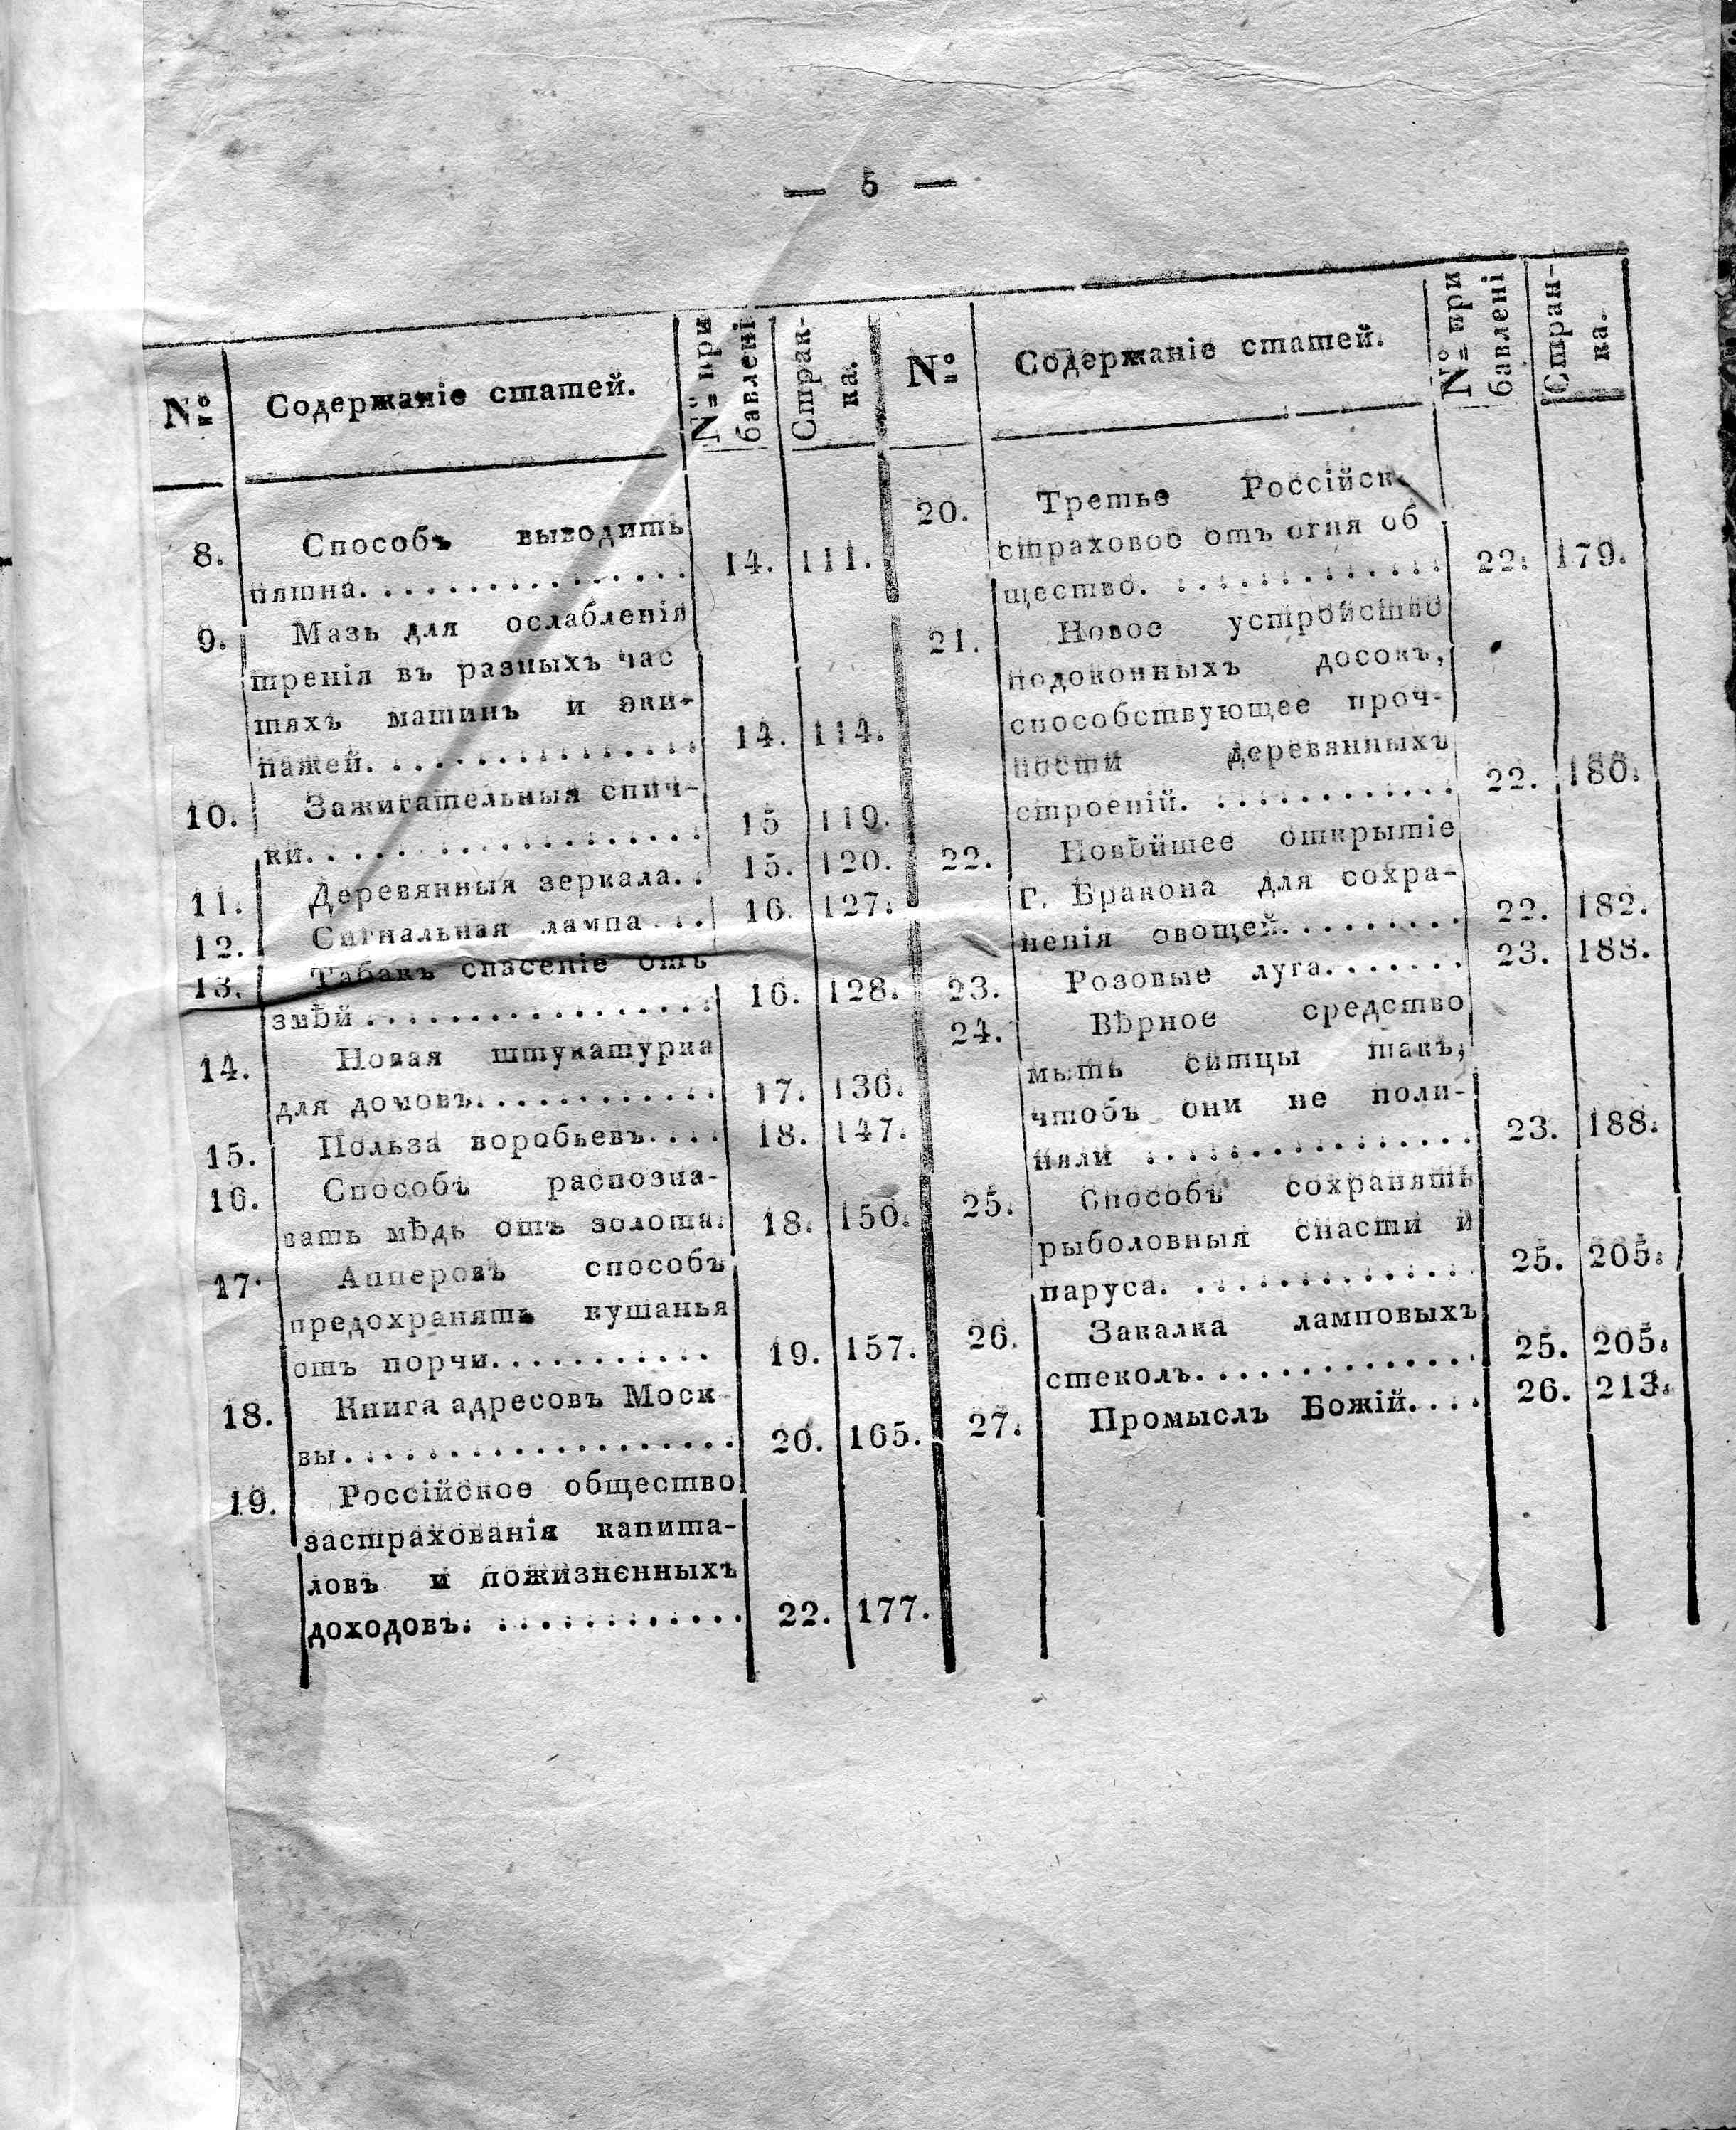 — 5 —
№ Содержаніе статей. № при бавлені Страк- ка.
8. Способъ выводить
пятна................ 14. 111.
9. Мазь для ослабленія
тренія въ разныхъ час
тяхъ машинъ и эки-
пажей................ 14. 114.
10. Зажигательныя спич-
ки................... 15 119.
11. Деревянныя зеркала.. 15. 120.
12. Сигнальная лампа... 16. 127.
13. Табакъ спасеніе отъ
змѣй................. 16. 128.
14. Новая штукатурка
для домовъ............ 17. 136.
15. Польза воробьевъ.... 18. 147.
16. Способъ распозна-
вать мѣдь отъ золота. 18. 150.
17. Апперовъ способъ
предохранять кушанья
отъ порчи........... 19. 157.
18. Книга адресовъ Моск
вы................... 20. 165.
19. Россійское общество
застрахованія капита-
ловъ и пожизненныхъ
доходовъ............. 22. 177.
№ Содержаніе статей. № при бавлені Стран- ка.
20. Третье Россійск.
страховое отъ огня об
щество............... 22. 179.
21. Новое устройство
подоконныхъ досокъ,
способствующее проч-
ности деревянныхъ
строеній............. 22. 180.
22. Новѣйшее открытіе
Г. Бракона для сохра-
ненія овощей......... 22. 182.
23. Розовые луга....... 23. 188.
24. Вѣрное средство
мыть ситцы такъ,
чтобъ они не поли-
няли ................ 23. 188.
25. Способъ сохранять
рыболовныя снасти и
паруса............... 25. 205.
26. Закалка ламповыхъ
стеколъ.............. 25. 205.
27. Промыслъ Божій.... 26. 213.